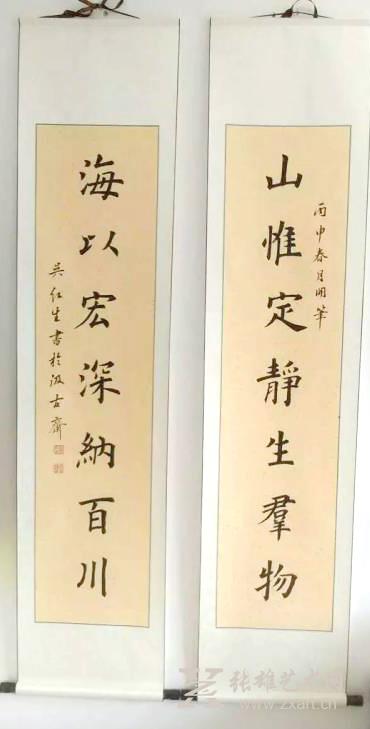 山惟定靜生羣物
丙申春月開筆
海以宏深納百川
吳紅生書於汲古齋
张雄艺术网
www.zxart.cn